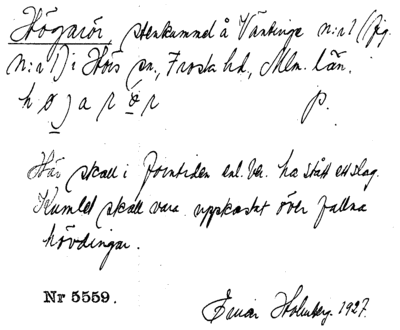 Högarör, stenkummel å Väntinge n:r 1 (fig.
N:r 1) i Hörs sn., Frosta hd., Mlm. län.
h ø j a r ö r p.
Här skall i forntiden enl. ber. ha stått ett slag.
Kumlet skall vara uppkastat över fallna
hövdingar.
Nr 5559. Einar Holmberg. 1927.